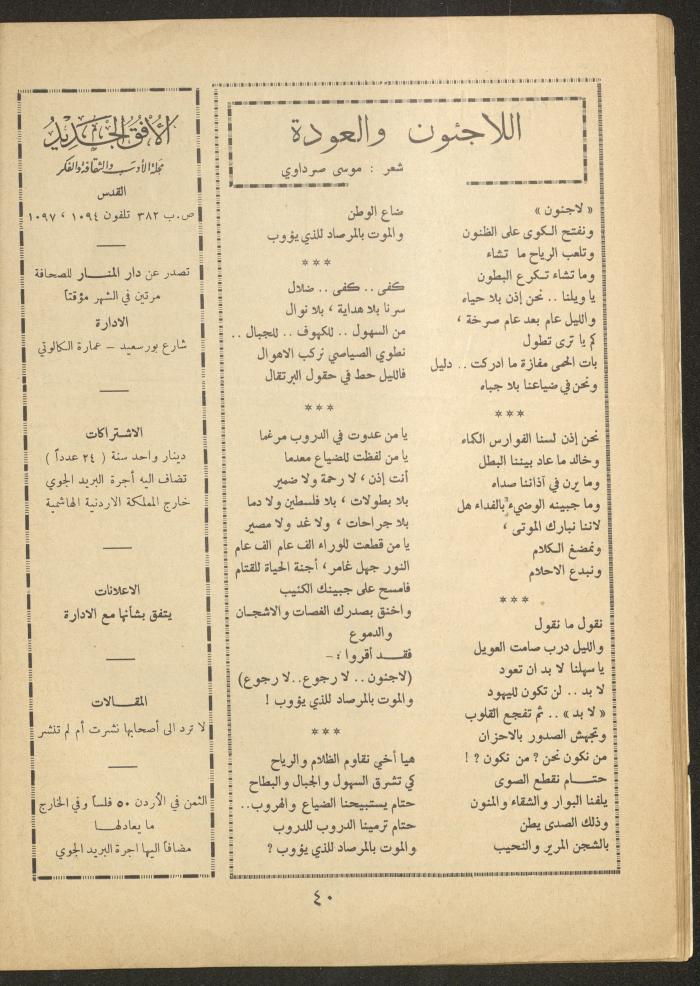 اللاجئون والعودة
شعر : موسى صرداوي
« لاجئون »
ونفتح الكوى على الظنون
وتلعب الرياح ما تشاء
وما تشاء تكرع البطون
يا ويلنا .. نحن إذن بلا حياء
والليل عام بعد عام صرخة ،
كم يا ترى تطول
بات الحمى مفازة ما ادركت .. دليل
ونحن في ضياعنا بلا جباه
***
نحن إذن لسنا الفوارس الكماء
وخالد ما عاد بيننا البطل
وما يرن في آذاننا صداه
وما جبينه الوضيء بالفداء هل
لاننا نبارك الموتى ،
ونمضغ الكلام
ونبدع الاحلام
***
نقول ما نقول
والليل درب صامت العويل
يا سهلنا لا بد ان تعود
لا بد .. لن تكون لليهود
« لا بد » .. ثم تفجع القلوب
وتجهش الصدور بالاحزان
من نكون نحن ? من نكون ? !
حتــام نقطع الصوى
يلفنا البوار والشقاء والمنون
وذلك الصدى يطن
بالشجن المرير والنحيب
ضاع الوطن
والموت بالمرصاد للذي يؤوب
***
كفى .. كفى .. ضلال
سرنا بلا هداية ، بلا نوال
من السهول .. للكهوف .. للجبال ..
نطوي الصياصي نركب الاهوال
فالليل حط في حقول البرتقال
***
يا من عدوت في الدروب مرغما
يا من لفظت للضياع معدما
أنت إذن ، لا رحمة ولا ضمير
بلا بطولات ، بلا فلسطين ولا دما
بلا جراحات ، ولا غد ولا مصير
يا من قطعت للوراء الف عام الف عام
النور جهل غامر، أجنة الحياة للقتام
فامسح على جبينك الكئيب
واخنق بصدرك الغصات والاشجــان
والدموع
فقــد أقروا :-
(لاجئون .. لا رجوع..لا رجوع)
والموت بالمرصاد للذي يؤوب !
***
هيا أخي نقاوم الظلام والرياح
كي تشرق السهول والجبال والبطاح
حتام يستبيحنا الضياع والهروب..
حتام ترمينا الدروب للدروب
والموت بالمرصاد للذي يؤوب ?
الأفق الجديد
مجلة الأدب والثقافة والفكر
القدس
ص.ب ٣٨٢ تلفون ١٠٩٤ ، ١٠٩٧
تصدر عن دار المنــار للصحافة
مرتين في الشهر مؤقتاً
الادارة
شارع بور سعيد – عمارة الكالوتي
الاشتراكات
دينار واحد سنة ( ٢٤ عدداً )
تضاف اليه أجرة البريد الجوي
خارج المملكة الاردنية الهاشمية
الاعلانات
يتفق بشأنها مع الادارة
المقــالات
لا ترد الى أصحابها نشرت أم لم تنشر
الثمن في الأردن ٥٠ فلساً وفي الخارج
ما يعادلهــا
مضافاً اليها اجرة البريد الجوي
٤٠